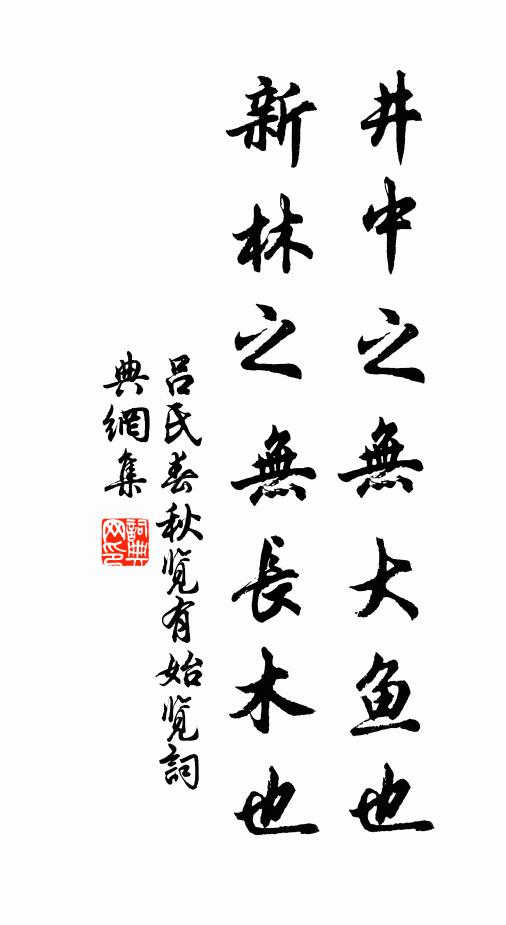 井中之無大鱼也
新林之無長木也
呂氏春秋览有始览詞
典網集
詞典
网印